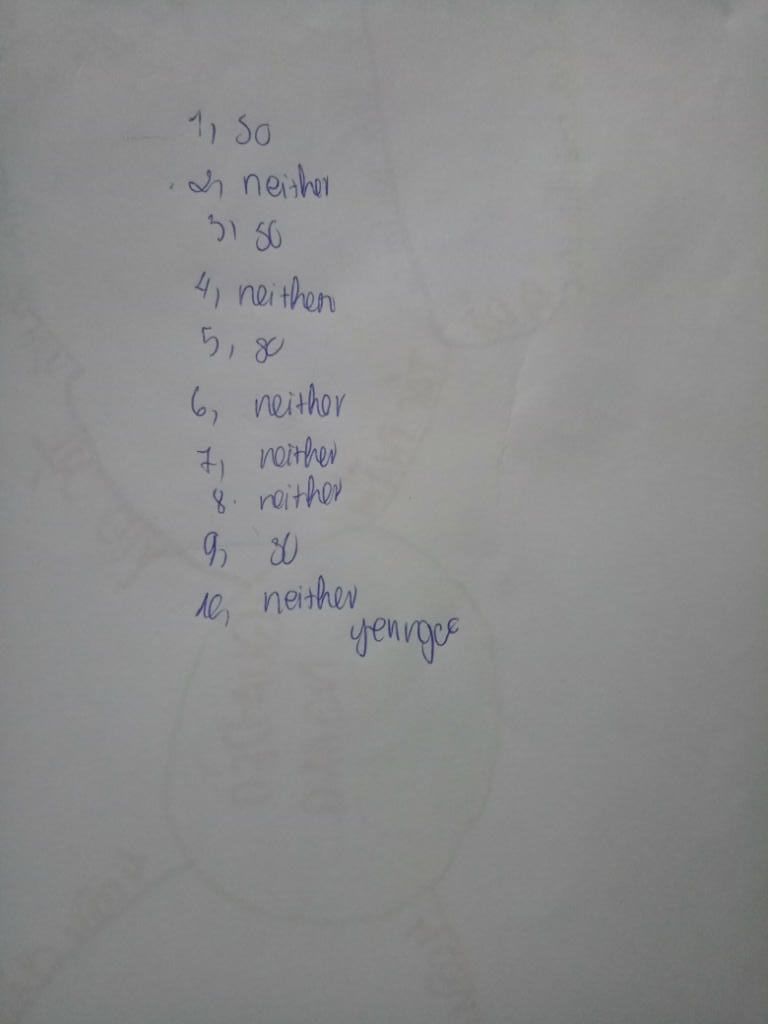 1, so
2, neither
3, so
4, neither
5, so
6, neither
7, neither
8. neither
9, so
10, neither